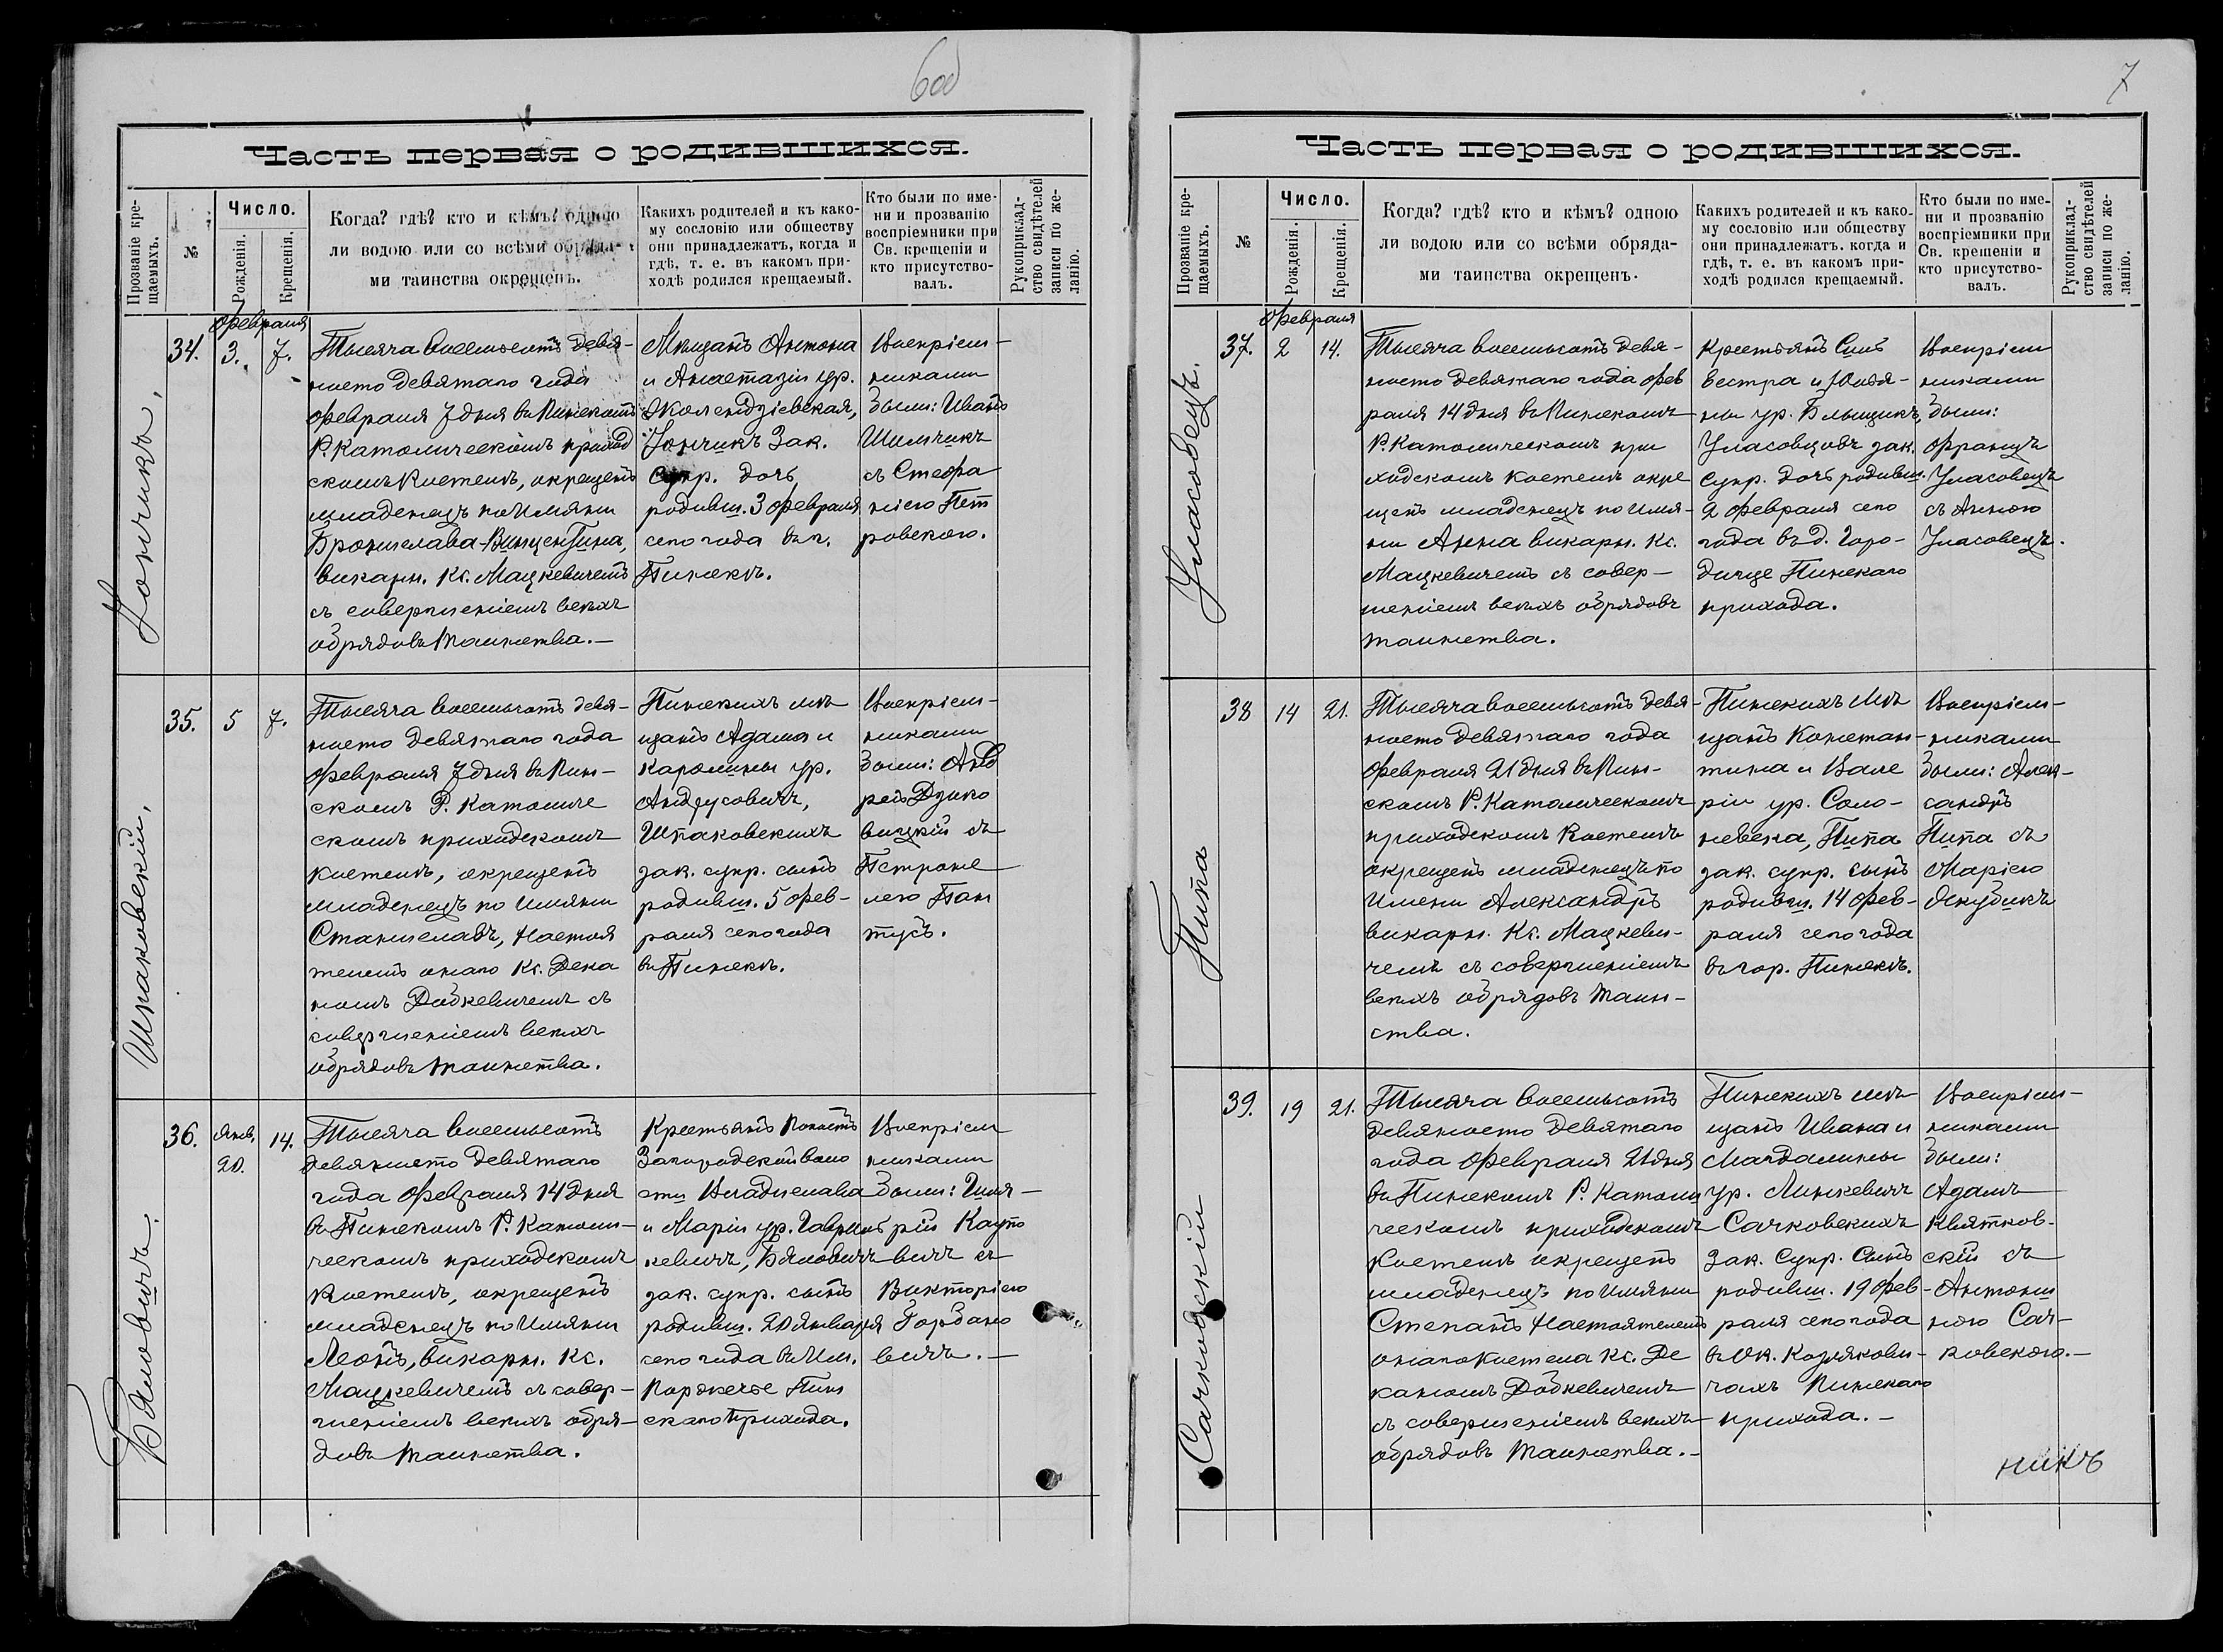 6об
Часть первая о родившихся.
Прозваніе кре-
щаемыхъ.
№
Число.
Рожденія.
Крещенія.
Когда? гдѣ? кто и кѣмъ? одною
ли водою или со всѣми обряда-
ми таинства окрещенъ.
Какихъ родителей и къ како-
му сословію или обществу
они принадлежатъ, когда и
гдѣ, т. е. въ какомъ при-
ходѣ родился крещаемый.
Кто были по име-
ни и прозванію
воспріемники при
Св. крещеніи и
кто присутство-
валъ.
Рукоприклад-
ство свидѣтелей
записи по же-
ланію.
Юнчикъ.
34.
Февраля
3.
7.
Тысяча восемьсотъ девя-
носто девятаго года
февраля 7 дня въ Пинскомъ
Р. Католическомъ приход
скомъ Костелѣ, окрещенъ
младенецъ по Имяни
Бронислава-Винцентина,
викарн. Кс. Мацкевичемъ
съ совершеніемъ всѣхъ
обрядовъ Таинства.—
Мѣщанъ Антона
и Анастазіи ур.
Жолендзіевская,
Юнчикъ Зак.
Супр. дочь
родивш. 3 февраля
сего года въ г.
Пинскѣ.
Воспріем-
никами
были: Иванъ
Шимчикъ
съ Стефа
ніею Пет
ровскою.
Шпаковскій.
35.
5
7.
Тысяча восемьсотъ девя-
носто девятаго года
февраля 7 дня въ Пин-
скомъ Р. Католиче
скомъ приходскомъ
костелѣ, окрещенъ
младенецъ по Имяни
Станиславъ, Настоя
телемъ онаго Кс. Дека
номъ Добкевичемъ съ
совершеніемъ всѣхъ
обрядовъ таинства.
Пинскихъ мѣ
щанъ Адама и
Каролины ур.
Андрусовичъ,
Шпаковскихъ
зак. супр. сынъ
родивш. 5 фев-
раля сего года
въ Пинскѣ.
Воспріем-
никами
были: Анд
рей Дзико
вицкій съ
Петроне
лею Пан
тусъ.
Бяловичъ.
36.
Янв.
20.
14.
Тысяча восемьсотъ
девяносто девятаго
года февраля 14 дня
въ Пинскомъ Р. Католи-
ческомъ приходскомъ
Костелѣ, окрещенъ
младенецъ по Имяни
Леонъ, викарн. Кс.
Мацкевичемъ съ совер-
шеніемъ всѣхъ обря-
довъ таинства.
Крестьянъ
сти Владислава
и Маріи ур. Гаврил
кевичъ, Бяловичъ
зак. супр. сынъ
родивш. 20 Января
сего года въ Им.
Порѣчье Пин
скаго прихода.
Воспріем
никами
были:
вичъ съ
Викторіею
Горбано
вичъ.—
7
Часть первая о родившихся.
Прозваніе кре-
щаемыхъ.
№
Число.
Рожденія.
Крещенія.
Когда? гдѣ? кто и кѣмъ? одною
ли водою или со всѣми обряда-
ми таинства окрещенъ.
Какихъ родителей и къ како-
му сословію или обществу
они принадлежатъ. когда и
гдѣ, т. е. въ какомъ при-
ходѣ родился крещаемый.
Кто были по име-
ни и прозванію
воспріемники при
Св. крещеніи и
кто присутство-
валъ.
Рукоприклад-
ство свидѣтелей
записи по же-
ланію.
Уласовецъ.
37.
Февраля
2
14.
Тысяча восемьсотъ девя-
носто девятаго года фев
раля 14 дня въ Пинскомъ
Р. Католическомъ при
ходскомъ Костелѣ окре
щенъ младенецъ по Имя-
ни Анна викарн. Кс.
Мацкевичемъ съ совер-
шеніемъ всѣхъ обрядовъ
таинства.
Крестьянъ Силь
вестра и Юлья-
ны ур.
Уласовцовъ зак.
супр. дочь родивш.
2 февраля сего
года въ д. Горо-
дище Пинскаго
прихода.
Воспріем
никами
были:
Францъ
Уласовецъ
съ Анною
Уласовецъ.
Пипа
38
14
21.
Тысяча восемьсотъ девя-
носто девятаго года
февраля 21 дня въ Пин-
скомъ Р. Католическомъ
приходскомъ Костелѣ
окрещенъ младенецъ по
Имени Александръ
викарн. Кс. Мацкеви-
чемъ съ совершеніемъ
всѣхъ обрядовъ таин-
ства.
Пинскихъ мѣ
щанъ Констан-
тина и Вале
ріи ур. Соло-
невска, Пипа
зак. супр. сынъ
родивш. 14 фев-
раля сего года
въ гор. Пинскѣ.
Воспріем-
никами
были: Алек-
сандръ
Пипа съ
Маріею
Якубикъ
Сачковскій
39.
19
21.
Тысяча восемьсотъ
девяносто девятаго
года февраля 21 дня
въ Пинскомъ Р. Католи
ческомъ приходскомъ
Костелѣ окрещенъ
младенецъ по Имяни
Степанъ Настоятелемъ
онаго Костела Кс. Де
каномъ Добкевичемъ
съ совершеніемъ всѣхъ
обрядовъ таинства.—
Пинскихъ мѣ
щанъ Ивана и
Магдалины
ур. Линкевичъ
Сачковскихъ
Зак. Супр. Сынъ
родивш. 19 фев-
раля сего года
въ Ок. Козлякови-
чахъ Пинскаго
прихода.—
Воспріем-
никами
были:
Адамъ
Квятков-
скій съ
Антони
ною Сач-
ковскою.—
никъ